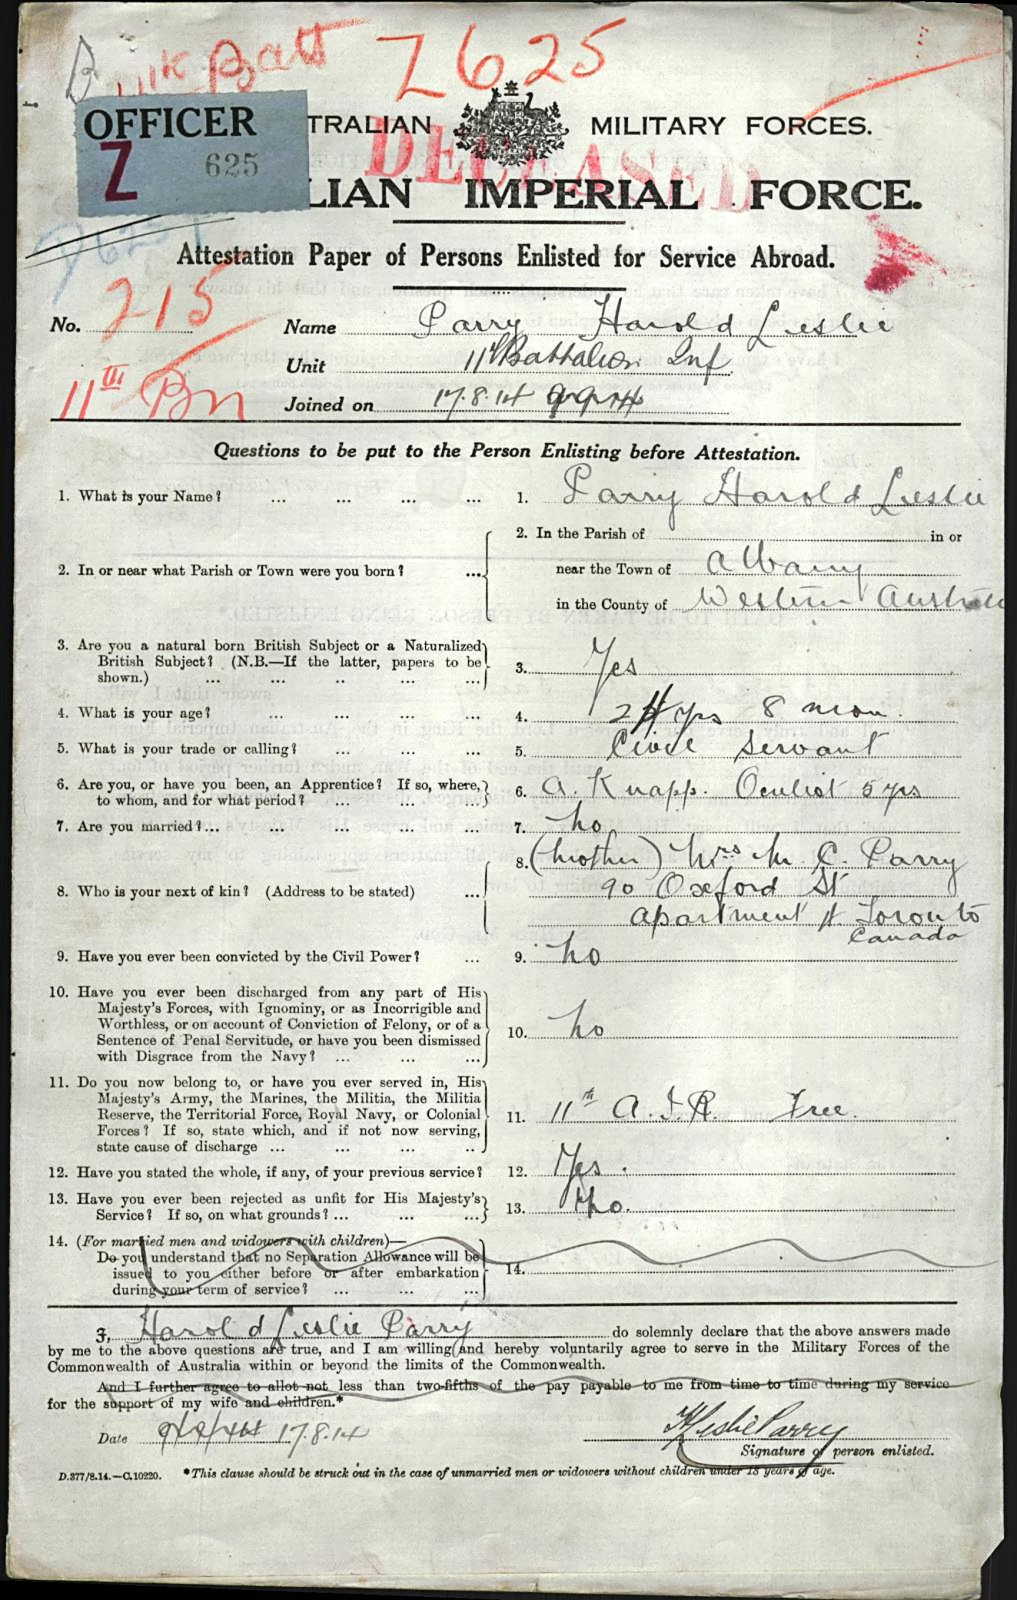 11th Batt
Z625
OFFICER
Z 625
TRALIAN MILITARY FORCES.
DECEASED
LIAN IMPERIAL FORCE.
Attestation Paper of Persons Enlisted for Service Abroad.
No. 215
11th Bn
Name Parry Harold Leslie
Unit 11th Battalion Inf
Joined on 17.8.14
Questions to be put to the Person Enlisting before Attestation.
1. What is your Name? ... ... ... ... 1. Parry Harold Leslie
2. In or near what Parish or Town were you born? ... 2. In the Parish of in or
near the Town of Albany
in the County of Western Australia
3. Are you a natural born British Subject or a Naturalized
British Subject? (N.B.—If the latter, papers to be
shown.) ... ... .. ... ... 3. Yes
4. What is your age? ... ... ... ... 4. 24 yrs 8 mon.
5. What is your trade or calling? ... ... ... 5. Civil Servant
6. Are you, or have you been, an Apprentice? If so, where,
to whom, and for what period? ... ... ... 6. A. Knapp. Oculist 5 yrs
7. Are you married? ... ... ... ... ... 7. No
8. Who is your next of kin? (Address to be stated) ... 8. (Mother) Mrs M. C. Parry
90 Oxford St
Apartment H Toronto
Canada
9. Have you ever been convicted by the Civil Power? ... 9. No
10. Have you ever been discharged from any part of His
Majesty's Forces, with Ignominy, or as Incorrigible and
Worthless, or on account of Conviction of Felony, or of a
Sentence of Penal Servitude, or have you been dismissed
with Disgrace from the Navy? ... ... ... 10. No
11. Do you now belong to, or have you ever served in, His
Majesty's Army, the Marines, the Militia, the Militia
Reserve, the Territorial Force, Royal Navy, or Colonial
Forces? If so, state which, and if not now serving,
state cause of discharge ... ... ... .. 11. 11th A.I.R. Free.
12. Have you stated the whole, if any, of your previous service? 12. Yes.
13. Have you ever been rejected as unfit for His Majesty's
Service? If so, on what grounds? ... ... ... 13. No.
14. (For married men and widowers with children)—
Do you understand that no Separation Allowance will be
issued to you either before or after embarkation
during your term of service? ... ... ... 14.
I, Harold Leslie Parry do solemnly declare that the above answers made
by me to the above questions are true, and I am willing and hereby voluntarily agree to serve in the Military Forces of the
Commonwealth of Australia within or beyond the limits of the Commonwealth.
And I further agree to allot not less than two-fifths of the pay payable to me from time to time during my service
for the support of my wife and children.*
Date 17.8.14 H Leslie Parry
Signature of person enlisted.
D.377/8.14.—C.10220. *This clause should be struck out in the case of unmarried men or widowers without children under 18 years of age.